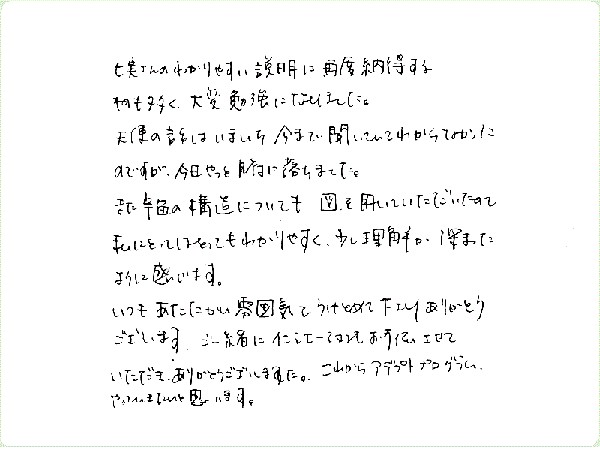 さんのわかりやすい説明に再度納得する
事も多く、大変勉強になりました。
天使の話はいまいち今まで聞いていてわからなかった
のですが、今日やっと腑に落ちました。
また宇宙の構造についても図を用いていただいたので
私にとってはとってもわかりやすく、少し理解が深まった
ように感じます。
いつもあたたかい雰囲気でうけとめて下さりありがとう
ございます。一緒にイニシエーションもお手伝いさせて
いただき、ありがとうございました。これからアデプトプログラム、
やっていきたいと思います。